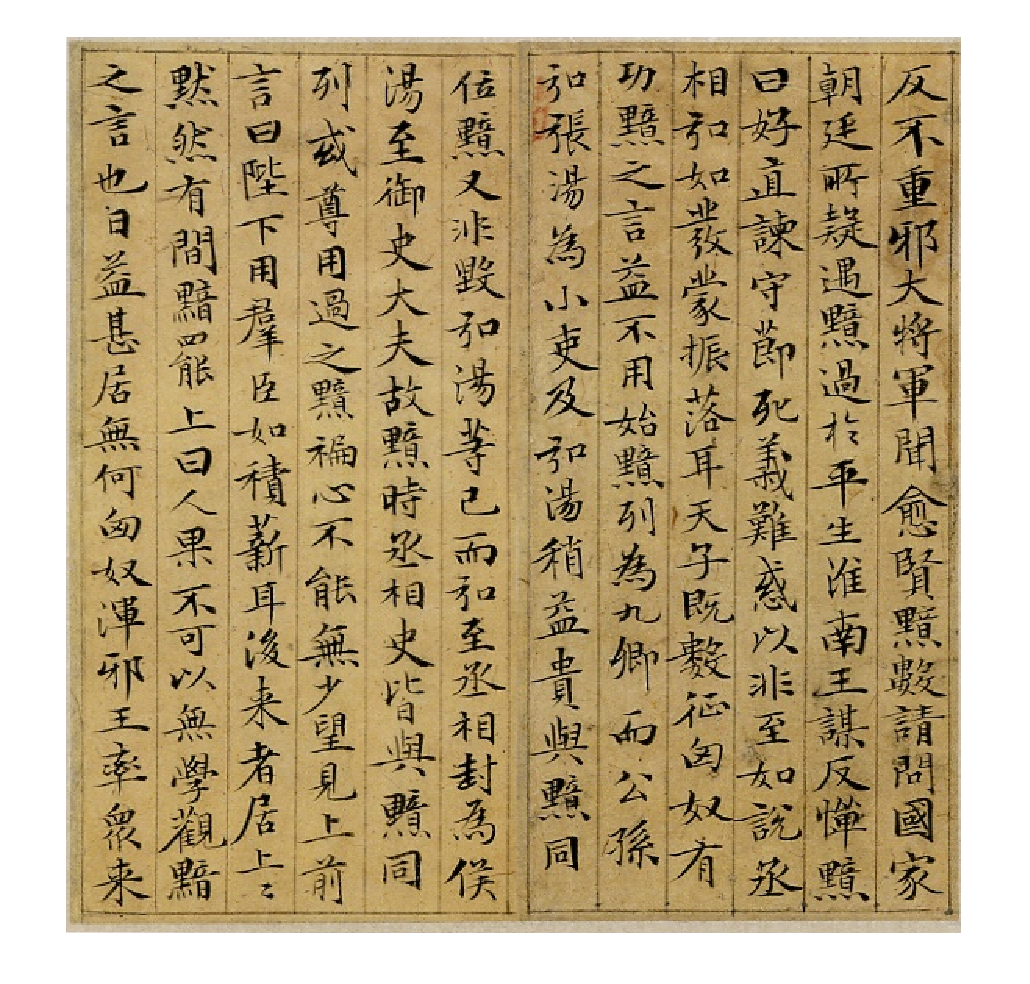 反不重邪大将軍聞愈賢黯數請問國家
朝廷所疑遇黯過於平生淮南王謀反憚黯
曰好直諫守節死義難惑以非至如說丞
相弘如發蒙振落耳天子既數征匈奴有
功黯之言益不用始黯列為九卿而公孫
弘張湯為小吏及弘湯稍益貴與黯同
位黯又非毀弘湯等已而弘至丞相封為侯
湯至御史大夫故黯時丞相史皆與黯同
列或尊用過之黯褊心不能無少望見上前
言曰陛下用群臣如積薪耳後来者居上〻
黙然有間黯罷上曰人果不可以無學觀黯
之言也日益甚居無何匈奴渾邪王率眾来